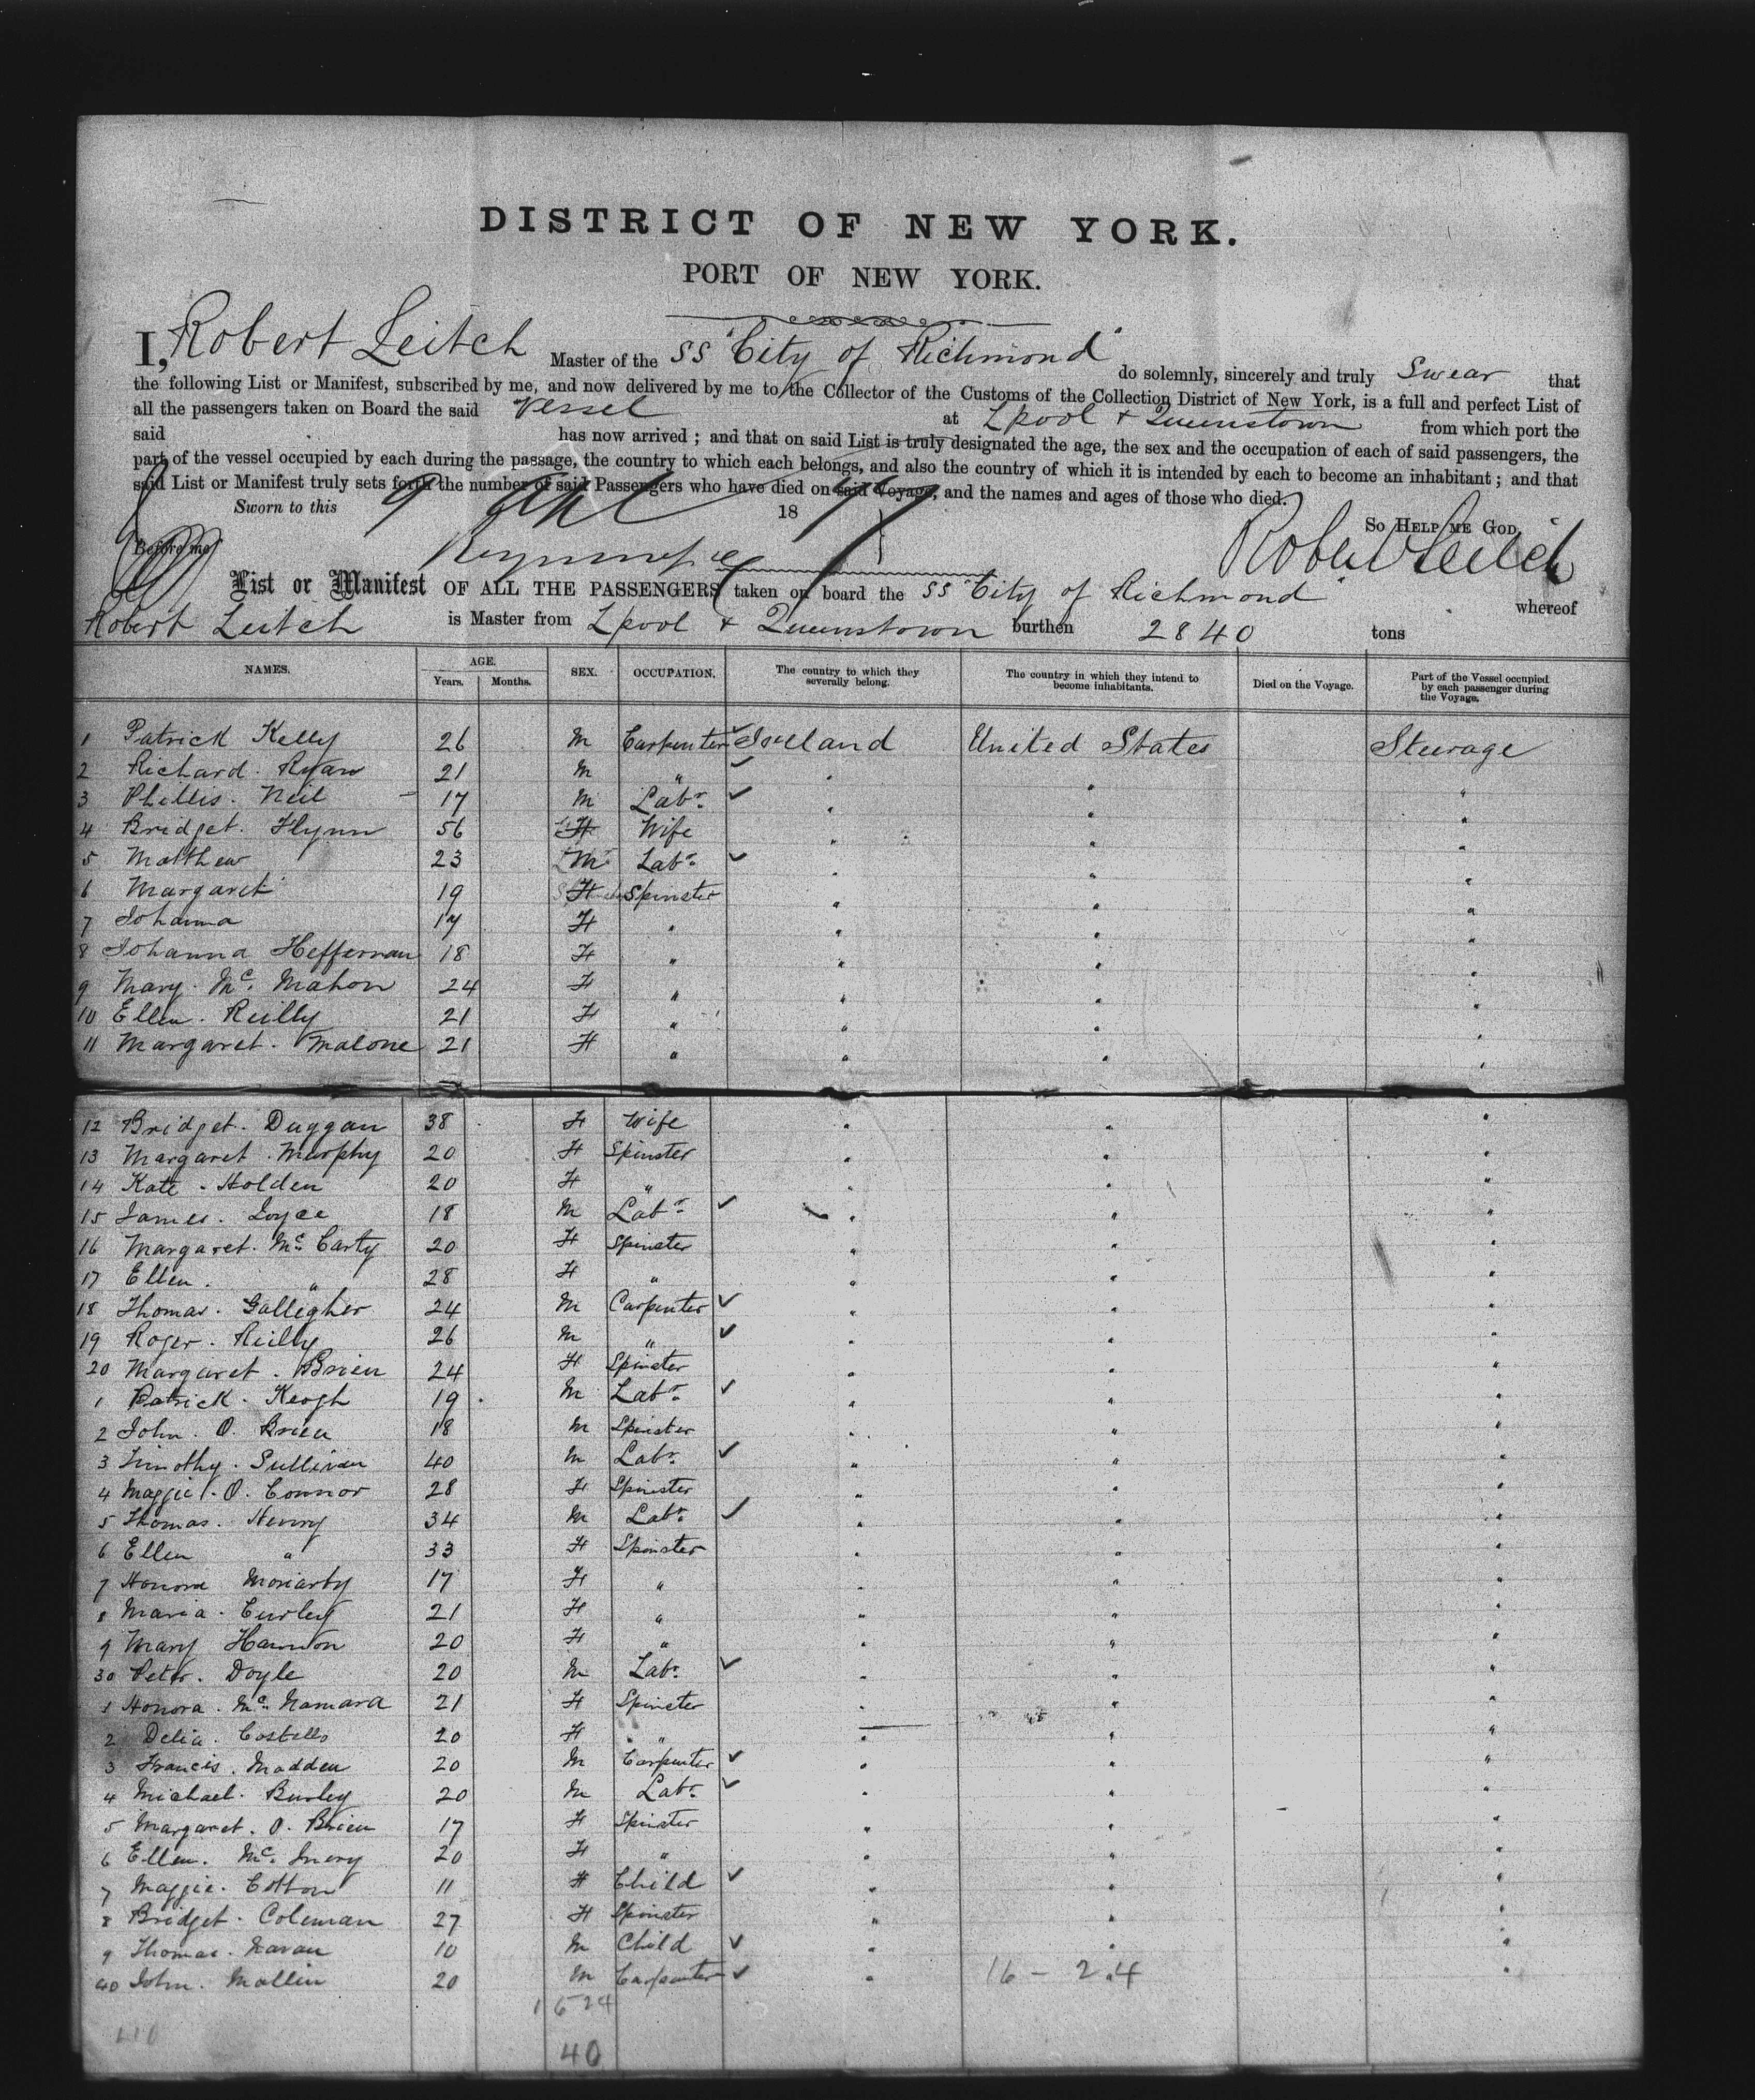 DISTRICT OF NEW YORK.
PORT OF NEW YORK.
I, Robert Leitch Master of the SS "City of Richmond" do solemnly, sincerely and truly Swear that
the following List or Manifest, subscribed by me, and now delivered by me to the Collector of the Customs of the Collection District of New York, is a full and perfect List of
all the passengers taken on Board the said Vessel at Lpool & Queenstown from which port the
said has now arrived; and that on said List is truly designated the age, the sex and the occupation of each of said passengers, the
part of the vessel occupied by each during the passage, the country to which each belongs, and also the country of which it is intended by each to become an inhabitant; and that
said List or Manifest truly sets forth the number of said Passengers who have died on said Voyage, and the names and ages of those who died.
Sworn to this 9 Apl 1877 So HELP ME GOD,
Before me Robert Leitch
List or Manifest OF ALL THE PASSENGERS taken on board the SS "City of Richmond" whereof
Robert Leitch is Master from Lpool & Queenstown burthen 2840 tons
NAMES. AGE. Years. Months. SEX. OCCUPATION. The country to which they severally belong. The country in which they intend to become inhabitants. Died on the Voyage. Part of the Vessel occupied by each passenger during the Voyage.
1 Patrick Kelly 26 M Carpenter Ireland United States Steerage
2 Richard Ryan 21 M " " " "
3 Phillis Neil 17 M Labr " " "
4 Bridget Flynn 56 F Wife " " "
5 Matthew 23 M Labr " " "
6 Margaret 19 F Spinster " " "
7 Johanna 17 F " " " "
8 Johanna Heffernan 18 F " " " "
9 Mary Mc Mahon 24 F " " " "
10 Ellen Reilly 21 F " " " "
11 Margaret Malone 21 F " " " "
12 Bridget Duggan 38 F Wife " " "
13 Margaret Murphy 20 F Spinster " " "
14 Kate Holden 20 F " " " "
15 James Joyce 18 M Labr " " "
16 Margaret Mc Carty 20 F Spinster " " "
17 Ellen " 28 F " " " "
18 Thomas Gallegher 24 M Carpenter " " "
19 Roger Reilly 26 M " " " "
20 Margaret Brien 24 F Spinster " " "
1 Patrick Keogh 19 M Labr " " "
2 John O. Brien 18 M Spinster " " "
3 Timothy Sullivan 40 M Labr " " "
4 Maggie O. Connor 28 F Spinster " " "
5 Thomas Henry 34 M Labr " " "
6 Ellen " 33 F Spinster " " "
7 Honora Moriarty 17 F " " " "
8 Maria Curley 21 F " " " "
9 Mary Hannon 20 F " " " "
30 Peter Doyle 20 M Labr " " "
1 Honora Mc Namara 21 F Spinster " " "
2 Delia Costello 20 F " " " "
3 Francis Madden 20 M Carpenter " " "
4 Michael Burley 20 M Labr " " "
5 Margaret O. Brien 17 F Spinster " " "
6 Ellen Mc Inery 20 F " " " "
7 Maggie Cotton 11 F Child " " "
8 Bridget Coleman 27 F Spinster " " "
9 Thomas Navan 10 M Child " " "
40 John Mallin 20 M Carpenter " 16 - 24 "
16 24
40